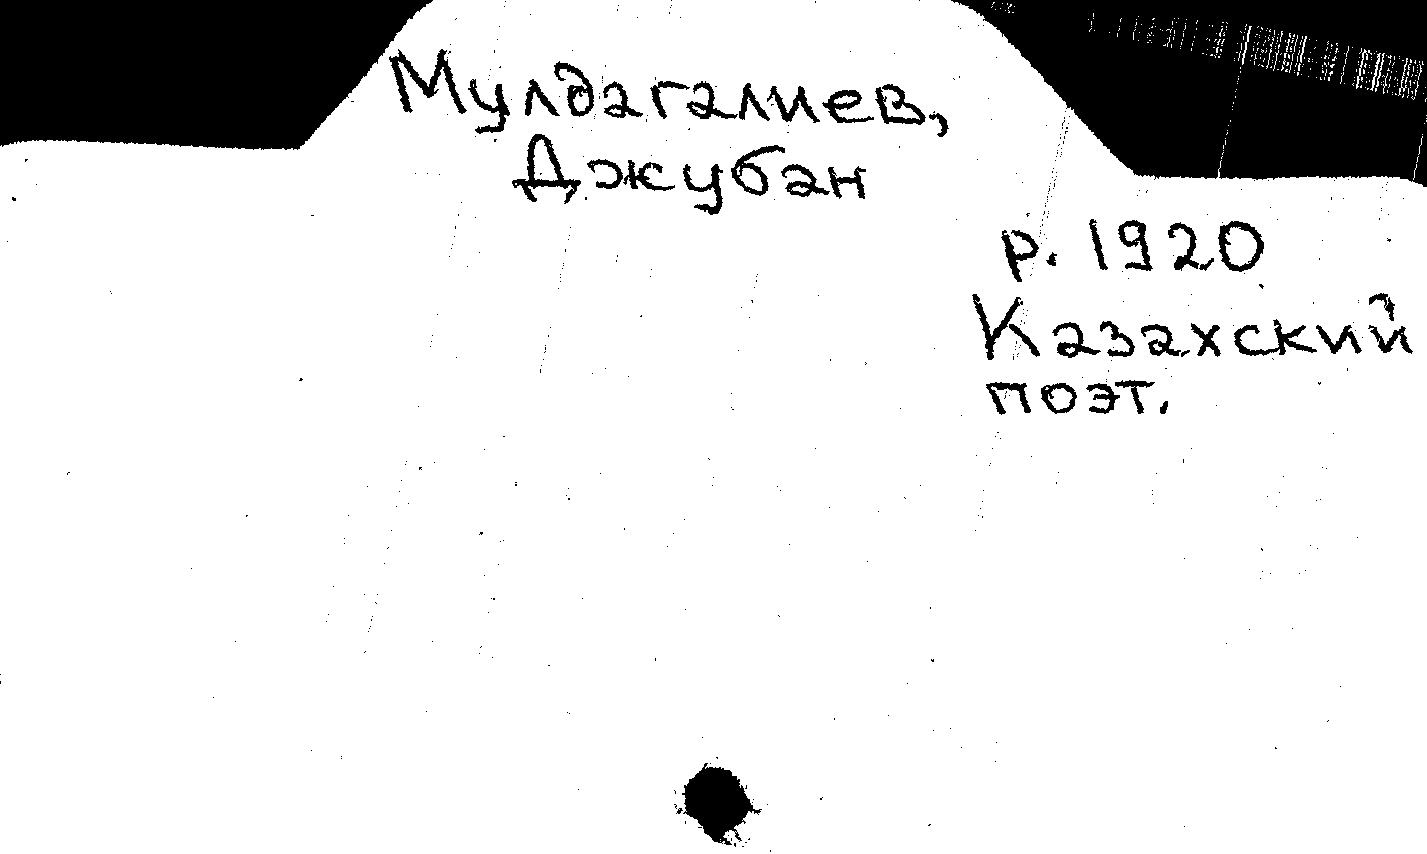 Мулдагалиев,
Джубан
р. 1920
Казахский
поэт.